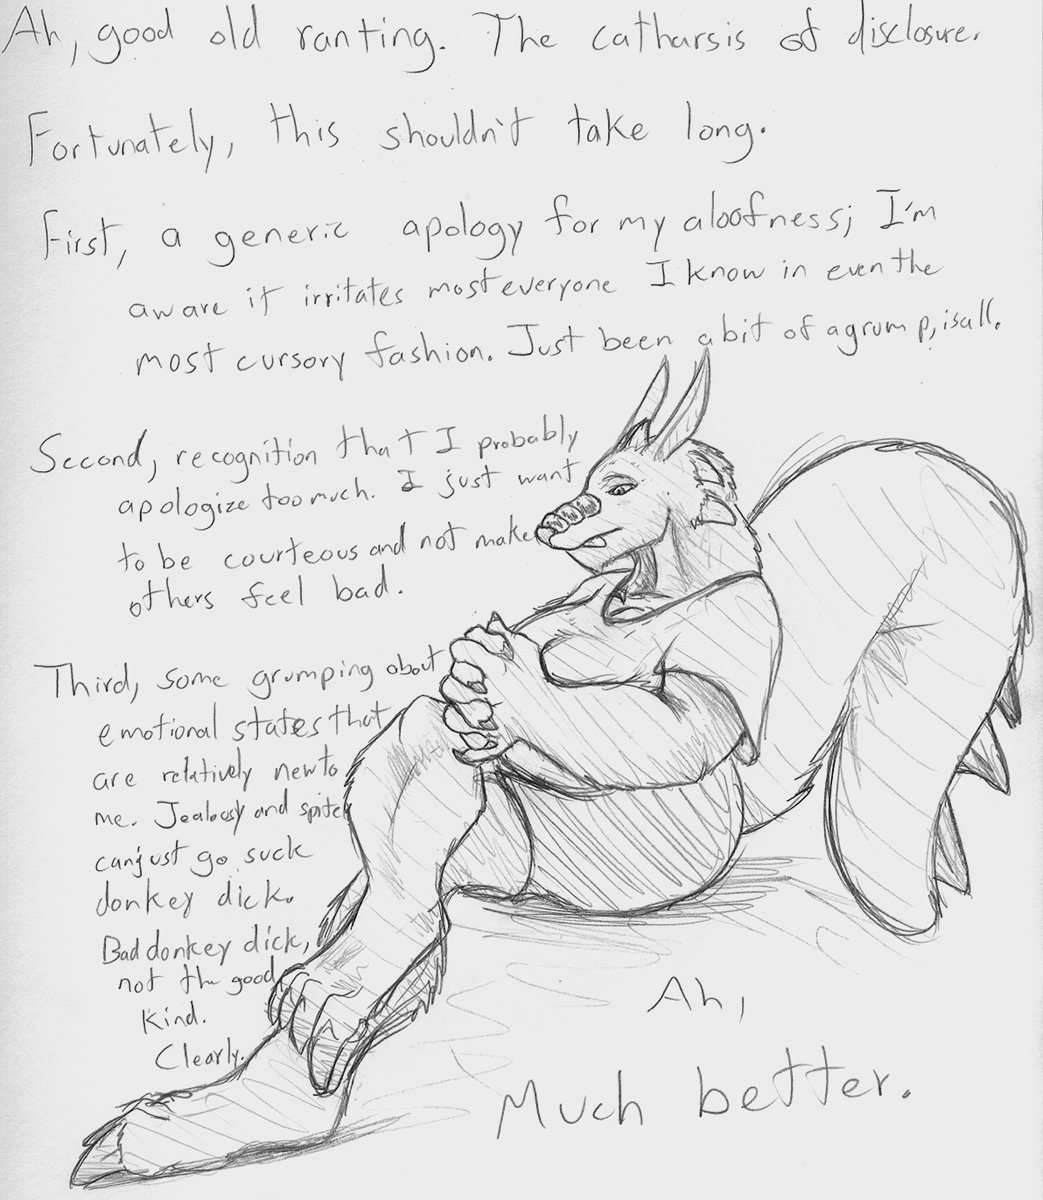 Ah, good old ranting. The catharsis of disclosure.
Fortunately, this shouldn't take long.
First, a generic apology for my aloofness; I'm
aware it irritates most everyone I know in even the
most cursory fashion. Just been a bit of a grump, is all.
Second, recognition that I probably
apologize too much. I just want
to be courteous and not make
others feel bad.
Third, some grumping about
emotional states that
are relatively new to
me. Jealousy and spite
can just go suck
donkey dick.
Bad donkey dick,
not the good
kind.
Clearly.
Ah,
Much better.